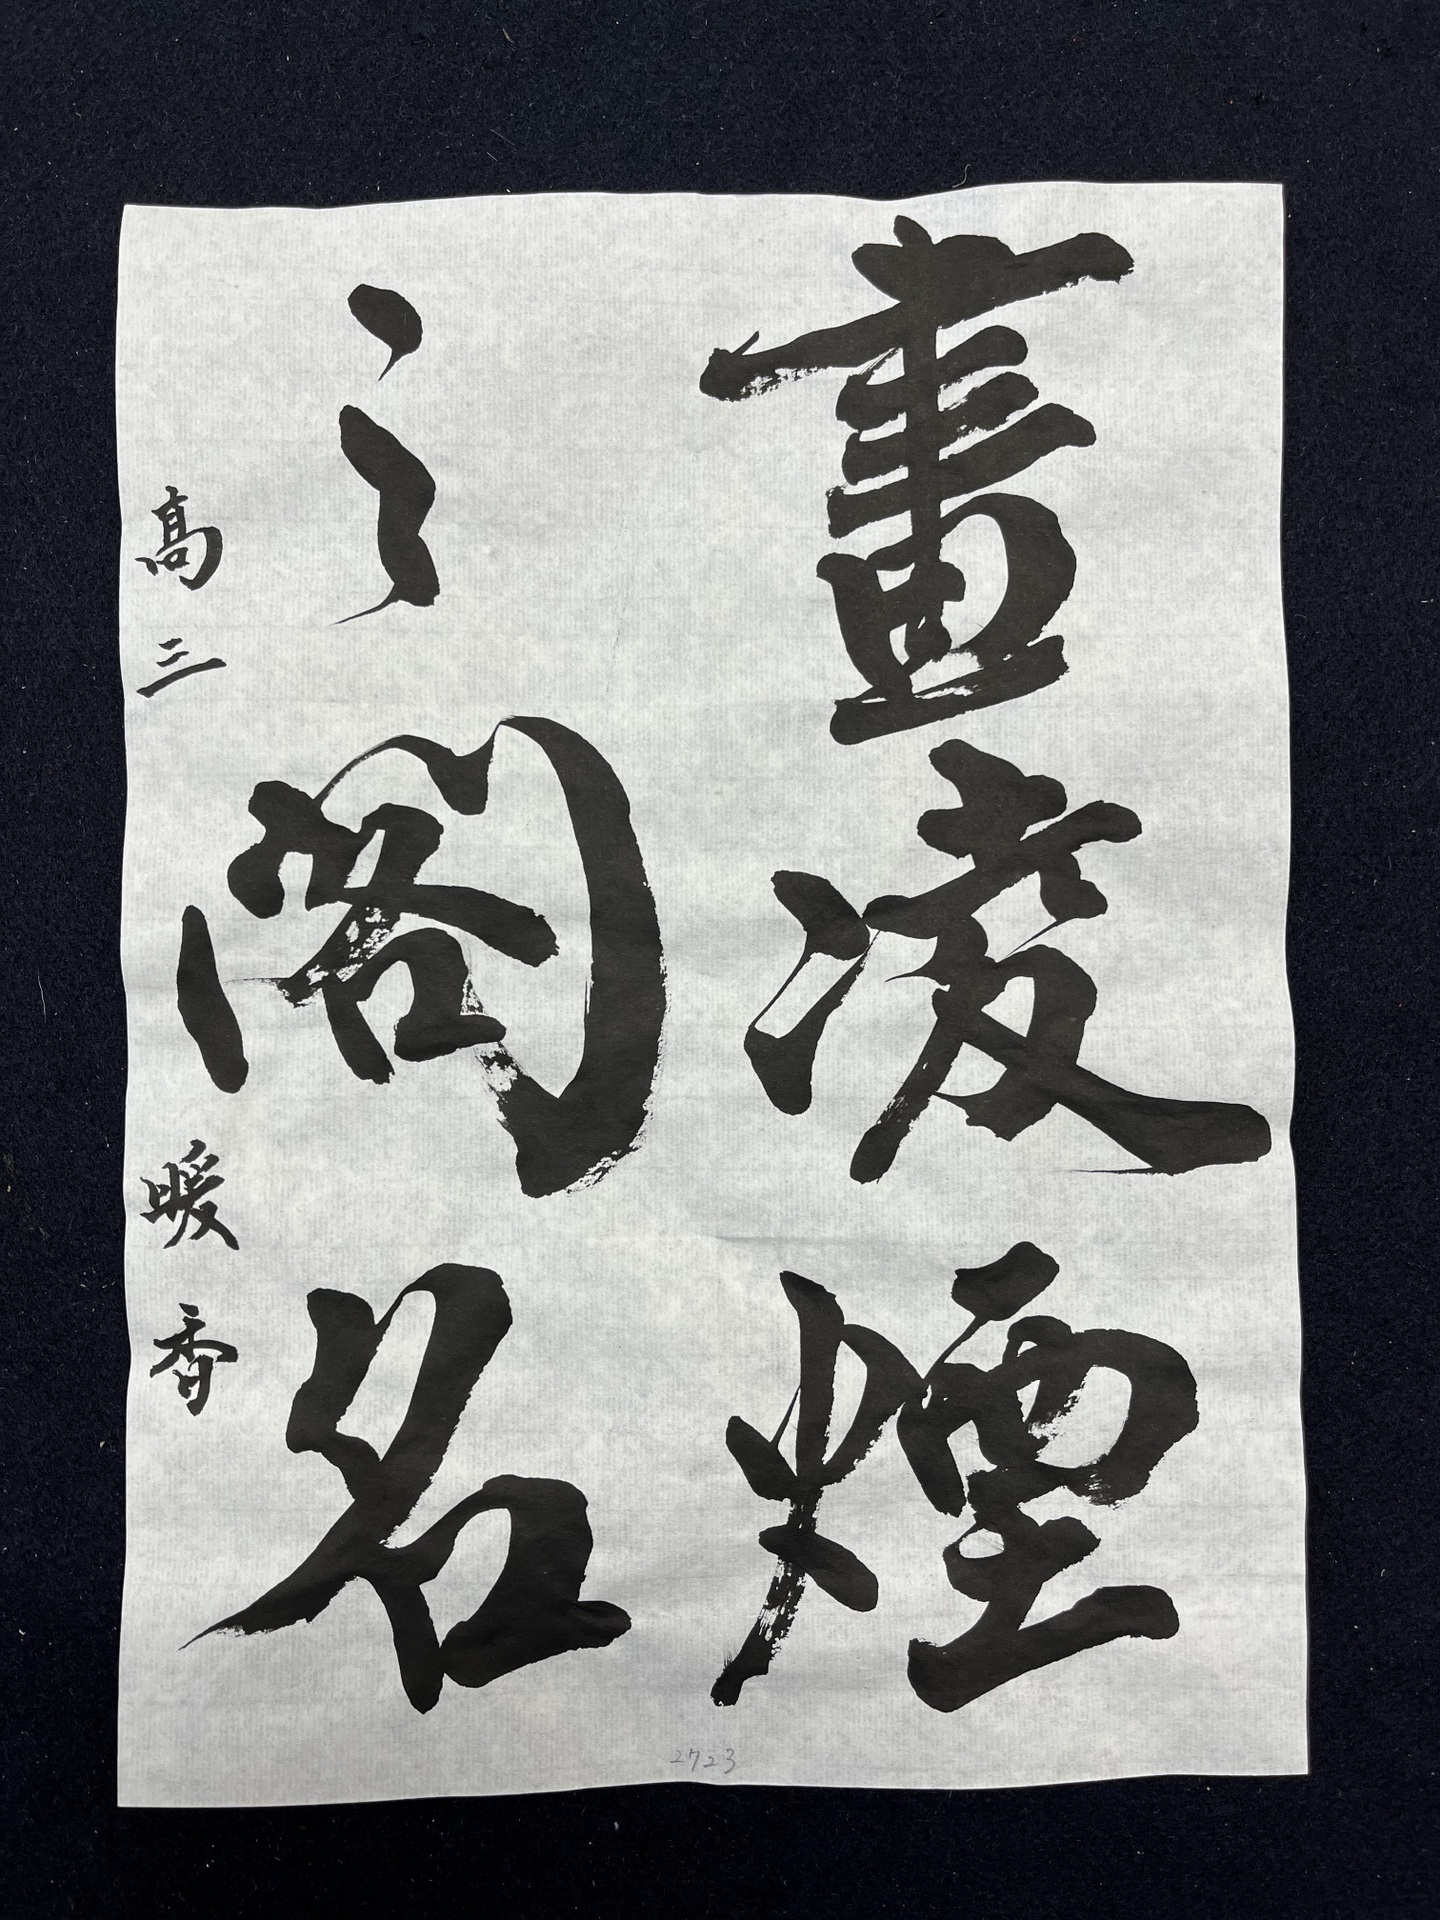 畫凌煙
之閣名
高三 暖香
2723